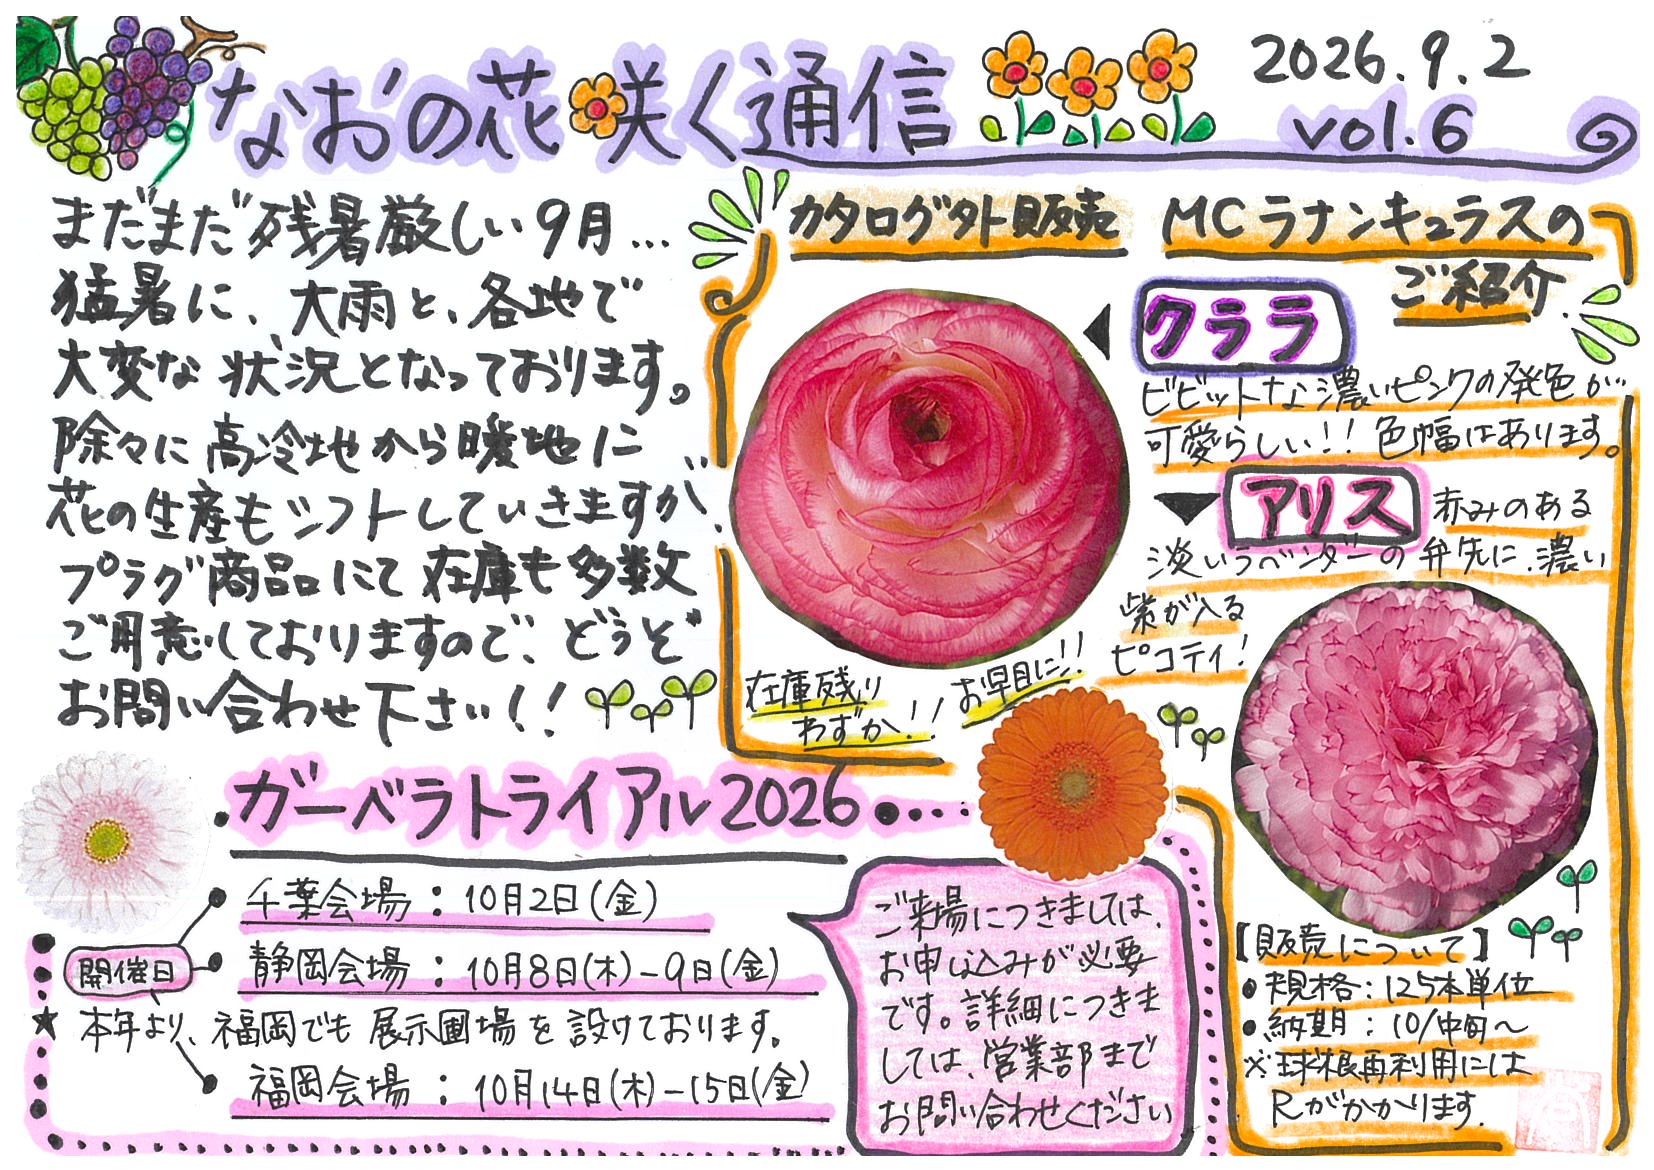 なおの花咲く通信
2026.9.2
vol.6
まだまだ残暑厳しい9月…
猛暑に、大雨と、各地で
大変な状況となっております。
除々に高冷地から暖地に
花の生産もシフトしていきますが、
プラグ商品にて在庫も多数
ご用意しておりますので、どうぞ
お問い合わせ下さい!!
カタログ外販売 MCラナンキュラスの
ご紹介
クララ
ビビットな濃いピンクの発色が
可愛らしい!! 色幅はあります。
アリス 赤みのある
淡いラベンダーの弁先に、濃い
紫が入る
ピコティ!
在庫残り
わずか!!
お早目に!!
【販売について】
●規格:125本単位
●納期:10/中旬～
※球根再利用には
Rがかかります。
ガーベラトライアル2026
開催日
千葉会場:10月2日(金)
静岡会場:10月8日(木)-9日(金)
★本年より、福岡でも展示圃場を設けております。
福岡会場:10月14日(木)-15日(金)
ご来場につきましては、
お申し込みが必要
です。詳細につきま
しては、営業部まで
お問い合わせください